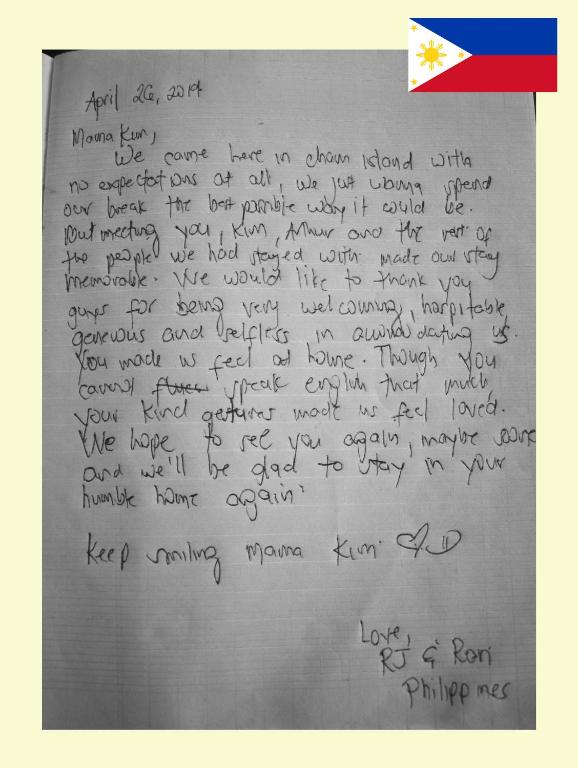 April 26, 2014
Mama Kim,
We came here in cham island with
no expectations at all, we just wanna spend
our break the best possible way it could be.
But meeting you, Kim, Arthur and the rest of
the people we had stayed with made our stay
memorable. We would like to thank you
guys for being very welcoming, hospitable,
generous and selfless in accomodating us.
You made us feel at home. Though you
cannot speak english that much,
your kind gestures made us feel loved.
We hope to see you again, maybe soon
and we'll be glad to stay in your
humble home again.
Keep smiling Mama Kim
Love,
RJ & Rori
Philippines